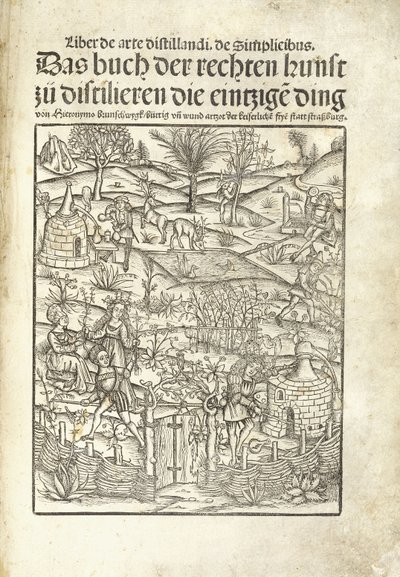 Liber de arte distillandi. de Simplicibus.
Das buch der rechten kunst
zů distilieren die eintzigẽ ding
von Hieronymo Brunschwygk, bürtig vñ wund artzot der keiserlichẽ fryẽ statt straßburg.